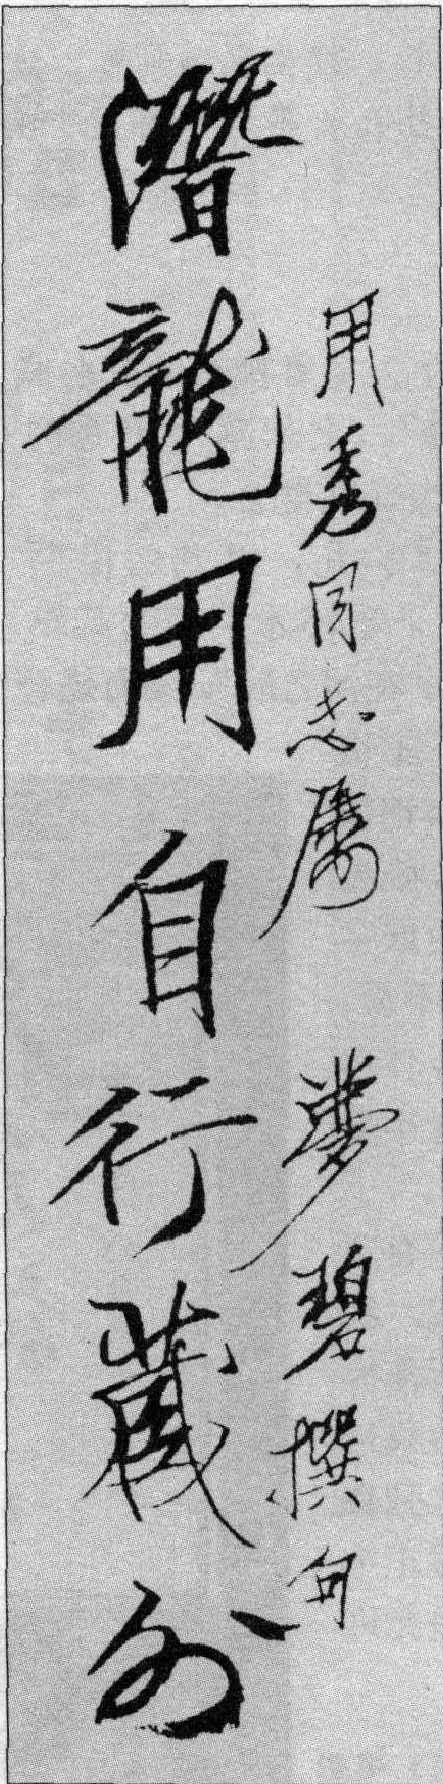 用秀同志属 夢碧撰句
潛龍用自行藏外